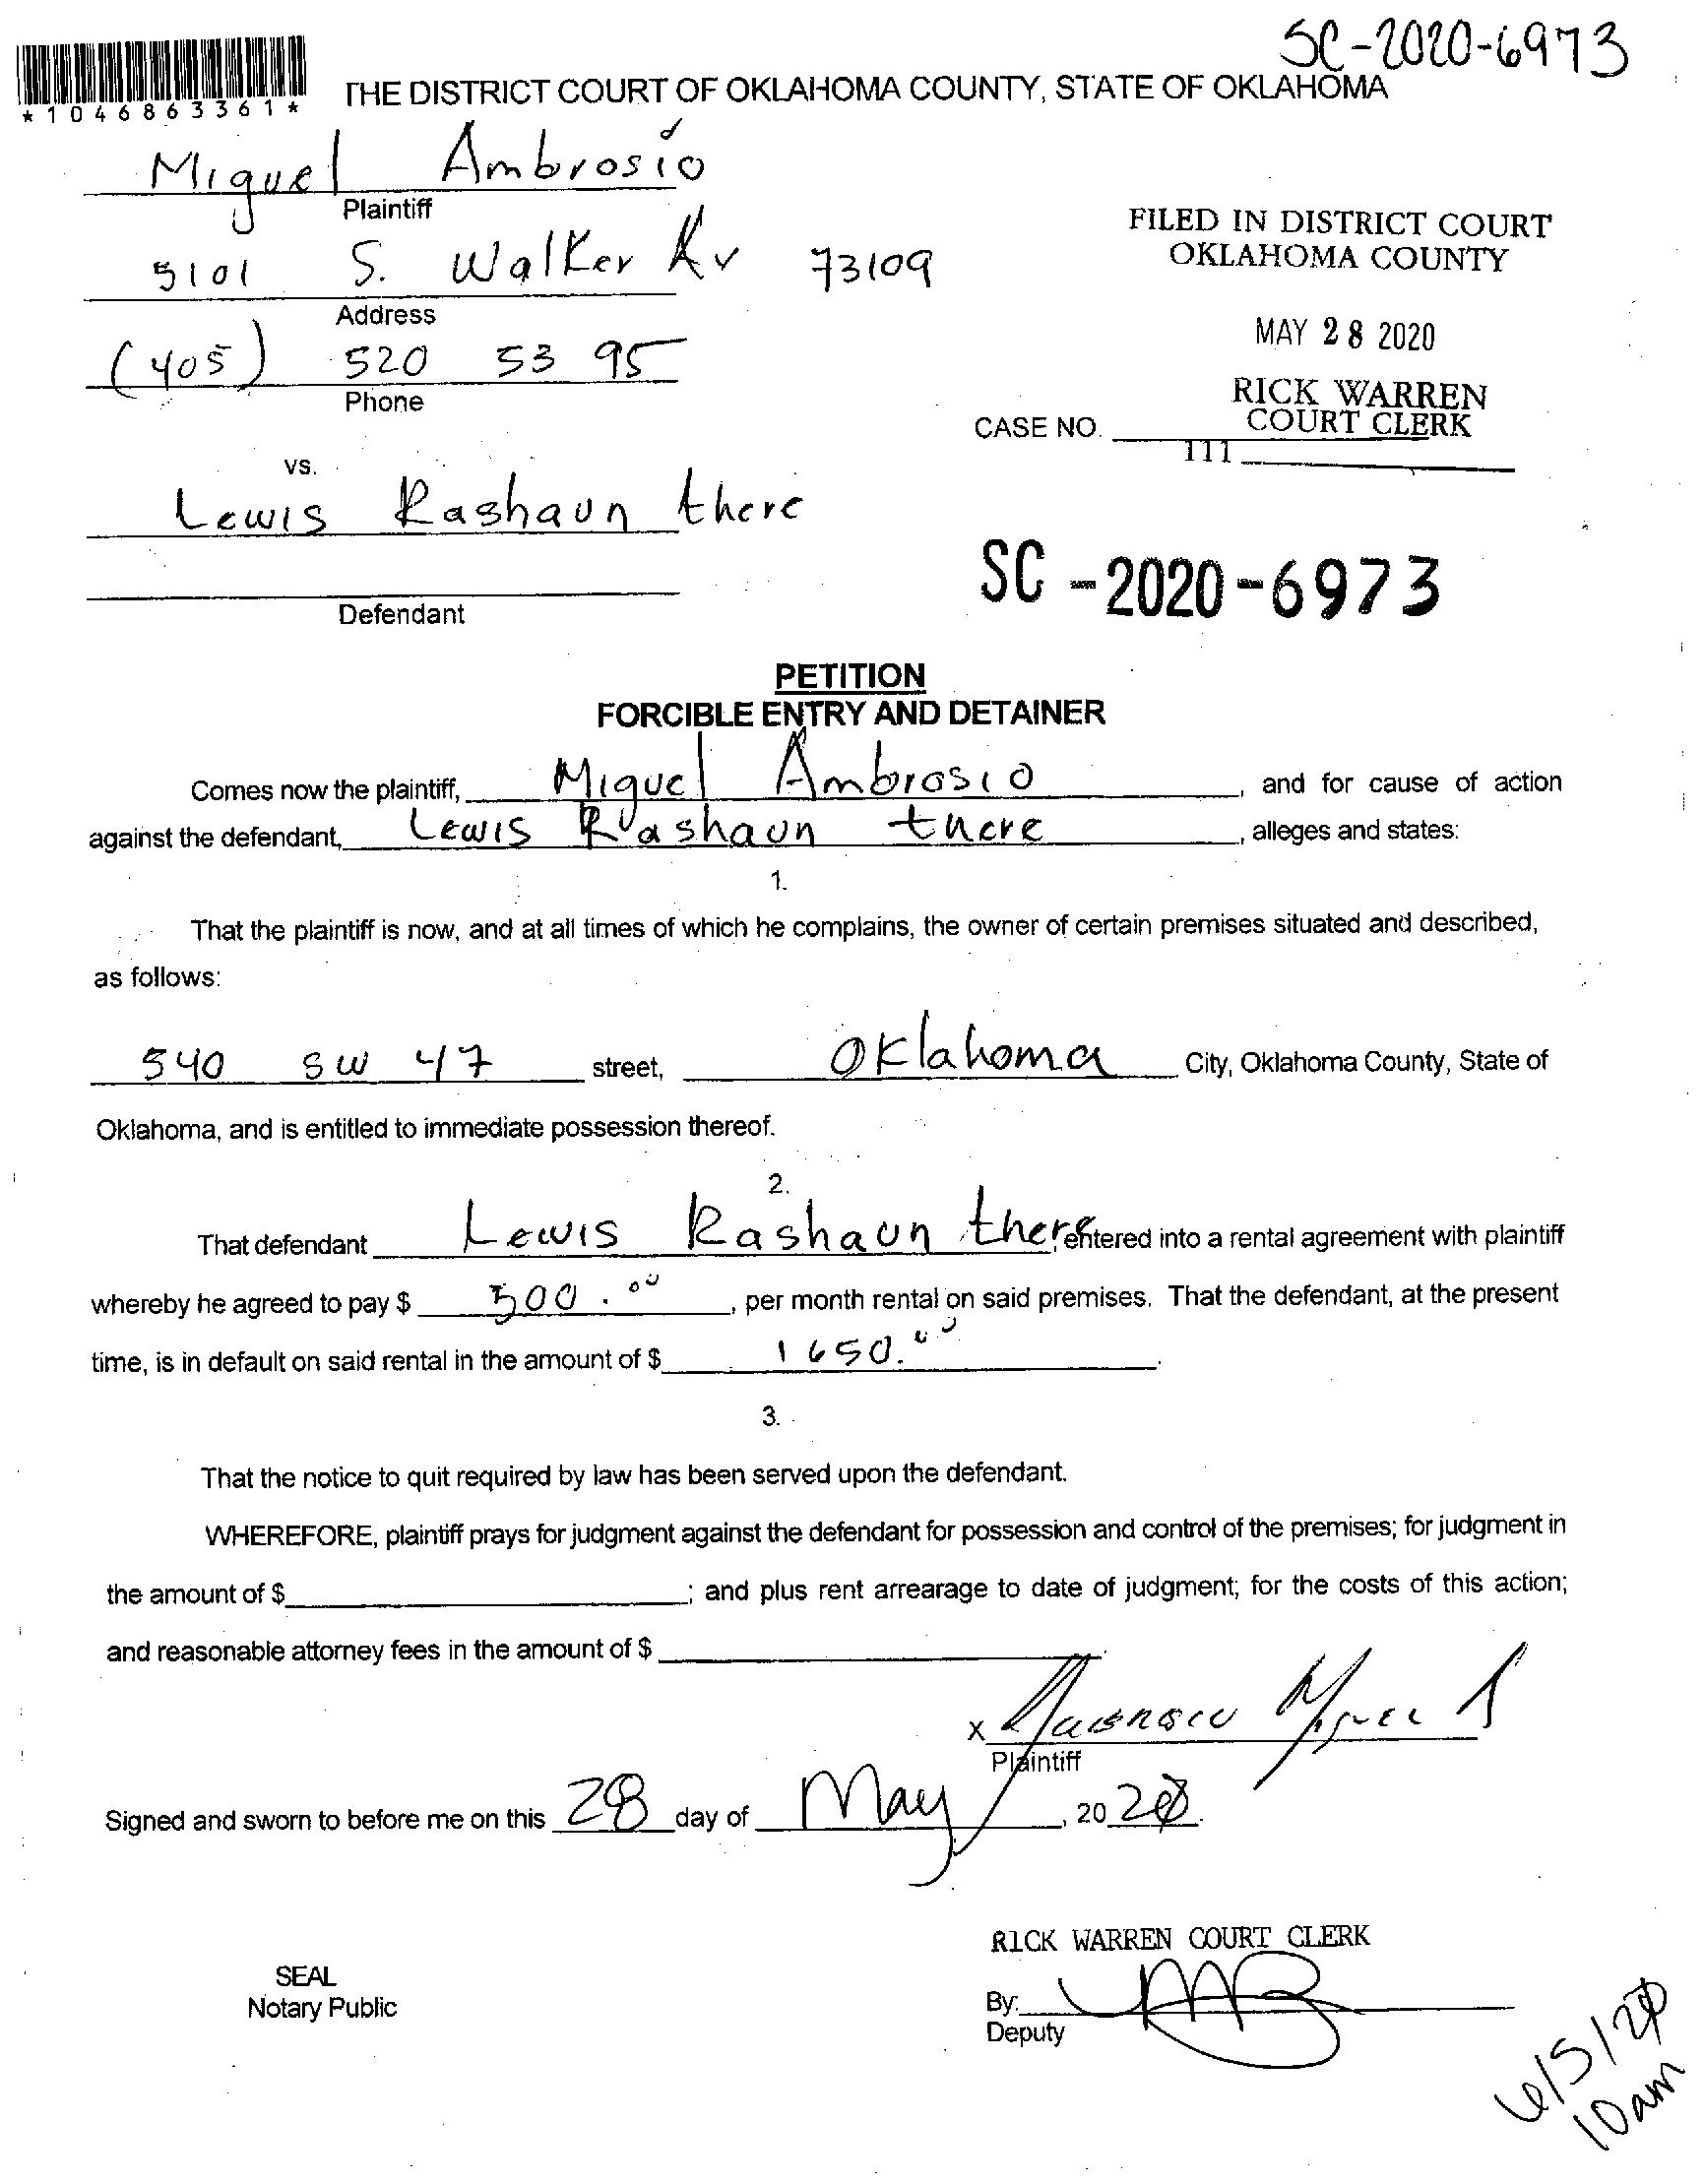 SC-2020-6973
*1046863361*
THE DISTRICT COURT OF OKLAHOMA COUNTY, STATE OF OKLAHOMA
Miguel Ambrosio
Plaintiff
5101 S. Walker Av 73109
Address
(405) 520 53 95
Phone
FILED IN DISTRICT COURT
OKLAHOMA COUNTY
MAY 28 2020
RICK WARREN
COURT CLERK
CASE NO.
111
vs.
Lewis Rashaun there
Defendant
SC-2020-6973
PETITION
FORCIBLE ENTRY AND DETAINER
Comes now the plaintiff, Miguel Ambrosio, and for cause of action
against the defendant, Lewis Rashaun there, alleges and states:
1.
That the plaintiff is now, and at all times of which he complains, the owner of certain premises situated and described,
as follows:
540 SW 47 street, Oklahoma City, Oklahoma County, State of
Oklahoma, and is entitled to immediate possession thereof.
2.
That defendant Lewis Rashaun there entered into a rental agreement with plaintiff
whereby he agreed to pay $ 500.00, per month rental on said premises. That the defendant, at the present
time, is in default on said rental in the amount of $ 1650.00.
3.
That the notice to quit required by law has been served upon the defendant.
WHEREFORE, plaintiff prays for judgment against the defendant for possession and control of the premises; for judgment in
the amount of $ ; and plus rent arrearage to date of judgment; for the costs of this action;
and reasonable attorney fees in the amount of $
X Ambrosio Miguel
Plaintiff
Signed and sworn to before me on this 28 day of May, 2020.
RICK WARREN COURT CLERK
SEAL
Notary Public
By: MB
Deputy
6/5/20
10am